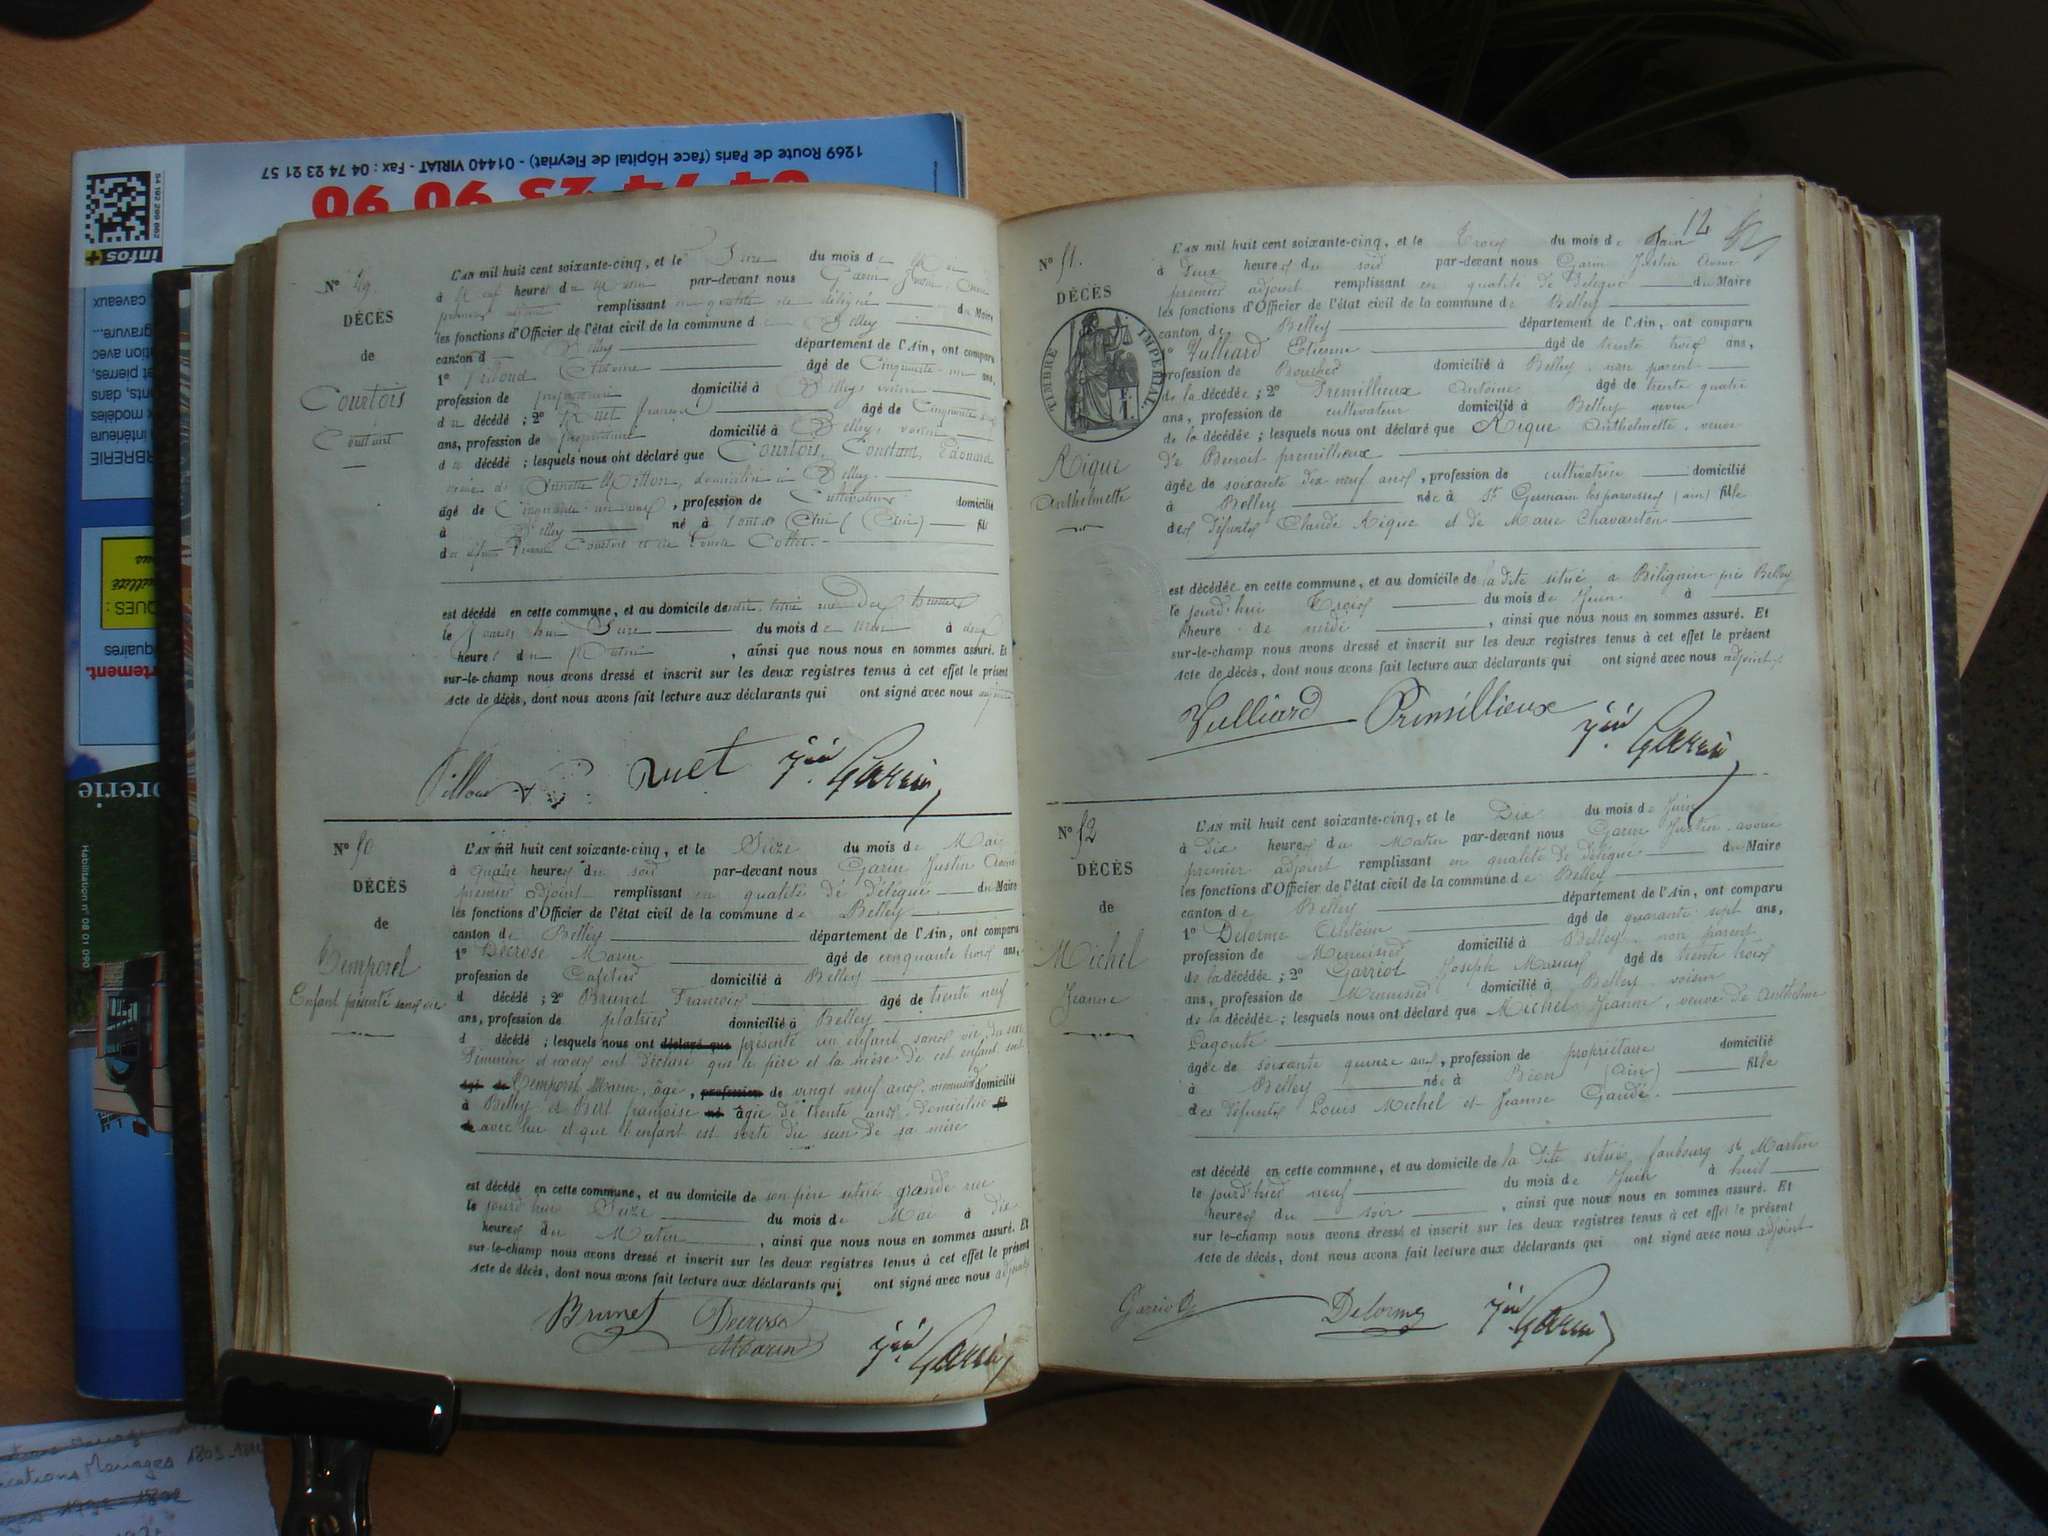 1269 Route de Paris (face Hôpital de Fleyriat) - 01440 VIRIAT - Fax : 04 74 23 21 57
04 74 23 90 90
infos+
54 192 299 662
caveaux
gravure...
et pierres,
dans
x modèles
intérieure
RBRERIE
QUES :
rtement.
brerie
Habilitation n° 08 01 090
N° 49.
DÉCÈS
de
Courtois
Constant
L'AN mil huit cent soixante-cinq, et le Seize du mois de Mai
à Neuf heures du Matin par-devant nous Garin Justin, Avoué
premier adjoint remplissant en qualité de délégué du Maire
les fonctions d'Officier de l'état civil de la commune de Belley
canton de Belley département de l'Ain, ont comparu
1° Antoine âgé de Cinquante un ans,
profession de propriétaire domicilié à Belley, voisin
du décédé ; 2° âgé de Cinquante
ans, profession de propriétaire domicilié à Belley, voisin
du décédé ; lesquels nous ont déclaré que Courtois, Constant, Edouard
domicilié à Belley.
âgé de Cinquante un ans, profession de Cultivateur domicilié
à Belley né à fils
est décédé en cette commune, et au domicile de
le jourd'hui Seize du mois de Mai à deux
heures du Matin, ainsi que nous nous en sommes assuré. Et
sur-le-champ nous avons dressé et inscrit sur les deux registres tenus à cet effet le présent
Acte de décès, dont nous avons fait lecture aux déclarants qui ont signé avec nous adjoint
Ruet Jin Garin
N° 50
DÉCÈS
de
Temporel
Enfant présenté sans vie
L'AN mil huit cent soixante-cinq, et le Seize du mois de Mai
à quatre heures du soir par-devant nous Garin Justin Avoué
premier adjoint remplissant en qualité de délégué du Maire
les fonctions d'Officier de l'état civil de la commune de Belley
canton de Belley département de l'Ain, ont comparu
1° Decrose Marin âgé de cinquante trois ans,
profession de Cafetier domicilié à Belley
d décédé ; 2° Brunet François âgé de trente neuf
ans, profession de platrier domicilié à Belley
d décédé ; lesquels nous ont déclaré que présenté un enfant sans vie, du sexe
féminin et nous ont déclaré que le père et la mère de cet enfant sont
âgé de Temporel Marin, âgé, profession de vingt neuf ans, menuisier domicilié
à Belley et Bert françoise né âgée de trente ans, domiciliée fil
d avec lui et que l'enfant est sorti du sein de sa mère
est décédé en cette commune, et au domicile de son père situé grande rue
le jourd'hui Seize du mois de Mai à dix
heures du Matin, ainsi que nous nous en sommes assuré. Et
sur-le-champ nous avons dressé et inscrit sur les deux registres tenus à cet effet le présent
Acte de décès, dont nous avons fait lecture aux déclarants qui ont signé avec nous adjoint
Brunet Decrose Marin Jin Garin
12
N° 51.
DÉCÈS
TIMBRE IMPERIAL
F. 1.
Rique
Anthelmette
L'AN mil huit cent soixante-cinq, et le Trois du mois de Juin
à Deux heures du soir par-devant nous Garin Justin Avoué
premier adjoint remplissant en qualité de Délégué du Maire
les fonctions d'Officier de l'état civil de la commune de Belley
canton de Belley département de l'Ain, ont comparu
1° Vulliard Etienne âgé de trente trois ans,
profession de Boucher domicilié à Belley non parent
de la décédée ; 2° Premillieux Antoine âgé de trente quatre
ans, profession de cultivateur domicilié à Belley neveu
de la décédée ; lesquels nous ont déclaré que Rique Anthelmette, veuve
de Benoit premillieux
âgée de soixante dix neuf ans, profession de cultivatrice domicilié
à Belley née à St Germain les paroisses (ain) fille
des défunts Claude Rique et de Marie Chavanton
est décédée en cette commune, et au domicile de la dite situé à Bilignin près Belley
le jourd'hui Trois du mois de Juin à
heure de midi, ainsi que nous nous en sommes assuré. Et
sur-le-champ nous avons dressé et inscrit sur les deux registres tenus à cet effet le présent
Acte de décès, dont nous avons fait lecture aux déclarants qui ont signé avec nous adjoint.
Vulliard Premillieux Jin Garin
N° 52
DÉCÈS
de
Michel
Jeanne
L'AN mil huit cent soixante-cinq, et le Dix du mois de Juin
à Dix heures du Matin par-devant nous Garin Justin avoué
premier adjoint remplissant en qualité de délégué du Maire
les fonctions d'Officier de l'état civil de la commune de Belley
canton de Belley département de l'Ain, ont comparu
1° Delorme Antoine âgé de quarante sept ans,
profession de Menuisier domicilié à Belley non parent
de la décédée ; 2° Garriot Joseph Marius âgé de trente trois
ans, profession de Menuisier domicilié à Belley voisin
de la décédée ; lesquels nous ont déclaré que Michel Jeanne, veuve de Anthelme
Lagoute
âgée de soixante quinze ans, profession de propriétaire domicilié
à Belley née à Béon (ain) fille
des défunts Louis Michel et Jeanne Gaudé.
est décédé en cette commune, et au domicile de la dite situé faubourg St Martin
le jourd'hier neuf du mois de Juin à huit
heures du soir, ainsi que nous nous en sommes assuré. Et
sur-le-champ nous avons dressé et inscrit sur les deux registres tenus à cet effet le présent
Acte de décès, dont nous avons fait lecture aux déclarants qui ont signé avec nous adjoint
Garriot Delorme Jin Garin
Mariages